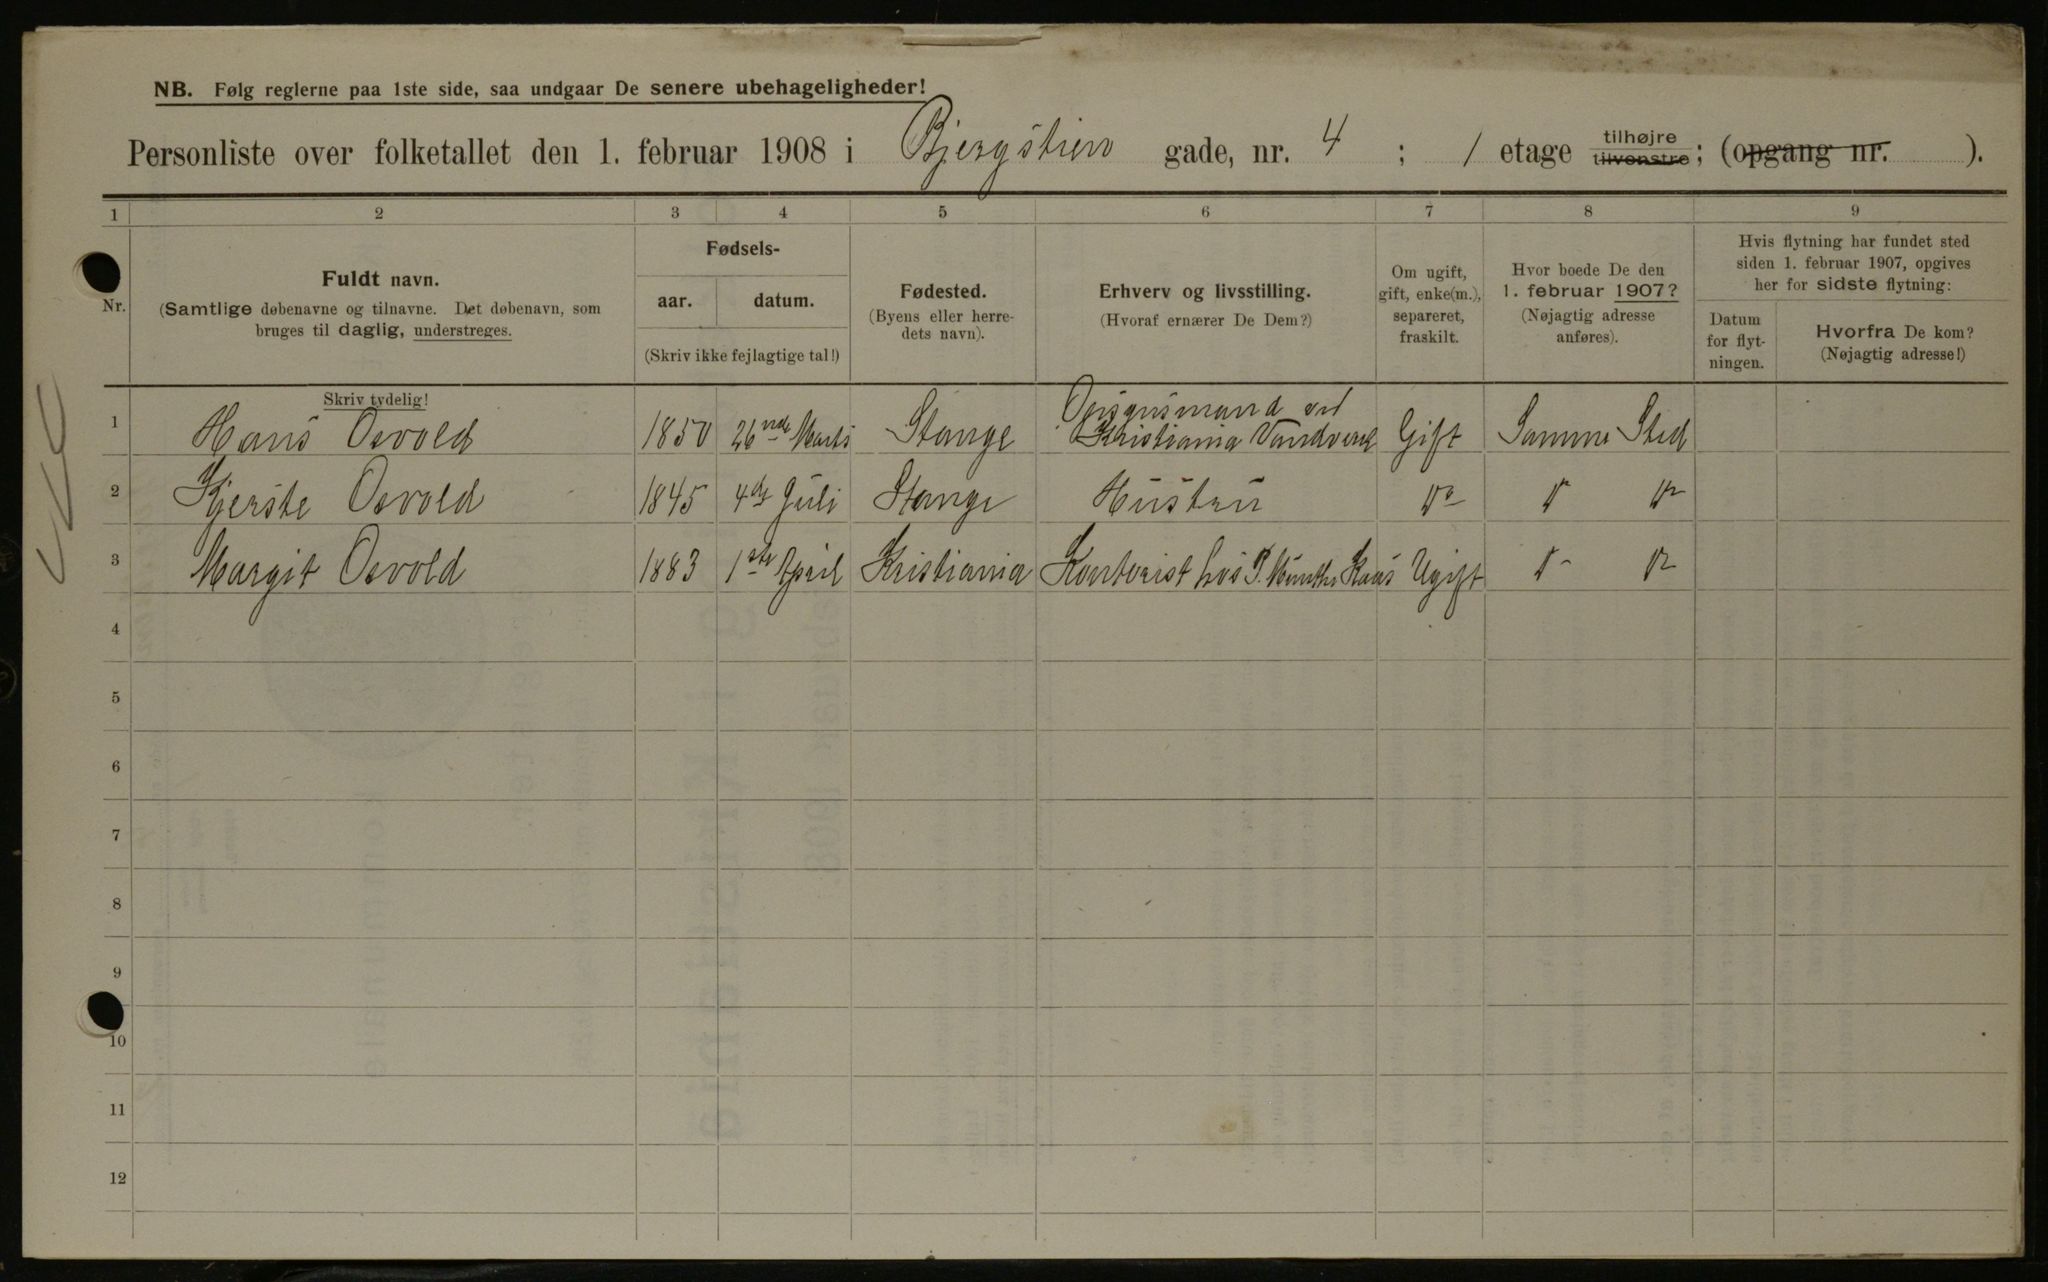 NB. Følg reglerne paa 1ste side, saa undgaar De senere ubehageligheder!
Personliste over folketallet den 1. februar 1908 i Bjergstien gade, nr. 4 ; 1 etage tilhøjre tilvenstre; (opgang nr. ).
1 2 3 4 5 6 7 8 9
Nr.
Fuldt navn.
(Samtlige døbenavne og tilnavne. Det døbenavn, som
bruges til daglig, understreges.
Fødsels-
aar. datum.
(Skriv ikke fejlagtige tal!)
Fødested.
(Byens eller herre-
dets navn).
Erhverv og livsstilling.
(Hvoraf ernærer De Dem?)
Om ugift,
gift, enke(m.),
separeret,
fraskilt.
Hvor boede De den
1. februar 1907?
(Nøjagtig adresse
anføres).
Hvis flytning har fundet sted
siden 1. februar 1907, opgives
her for sidste flytning:
Datum
for flyt-
ningen.
Hvorfra De kom?
(Nøjagtig adresse!)
Skriv tydelig!
1 Hans Osvold 1850 26nde Marts Stange Opsynsmand ved Kristiania Vandverk Gift Samme Sted
2 Kjerste Osvold 1845 4de Juli Stange Hustru do do do
3 Margit Osvold 1883 1ste April Kristiania Kontorist hos P. Munthe Kaas Ugift do do
4
5
6
7
8
9
10
11
12